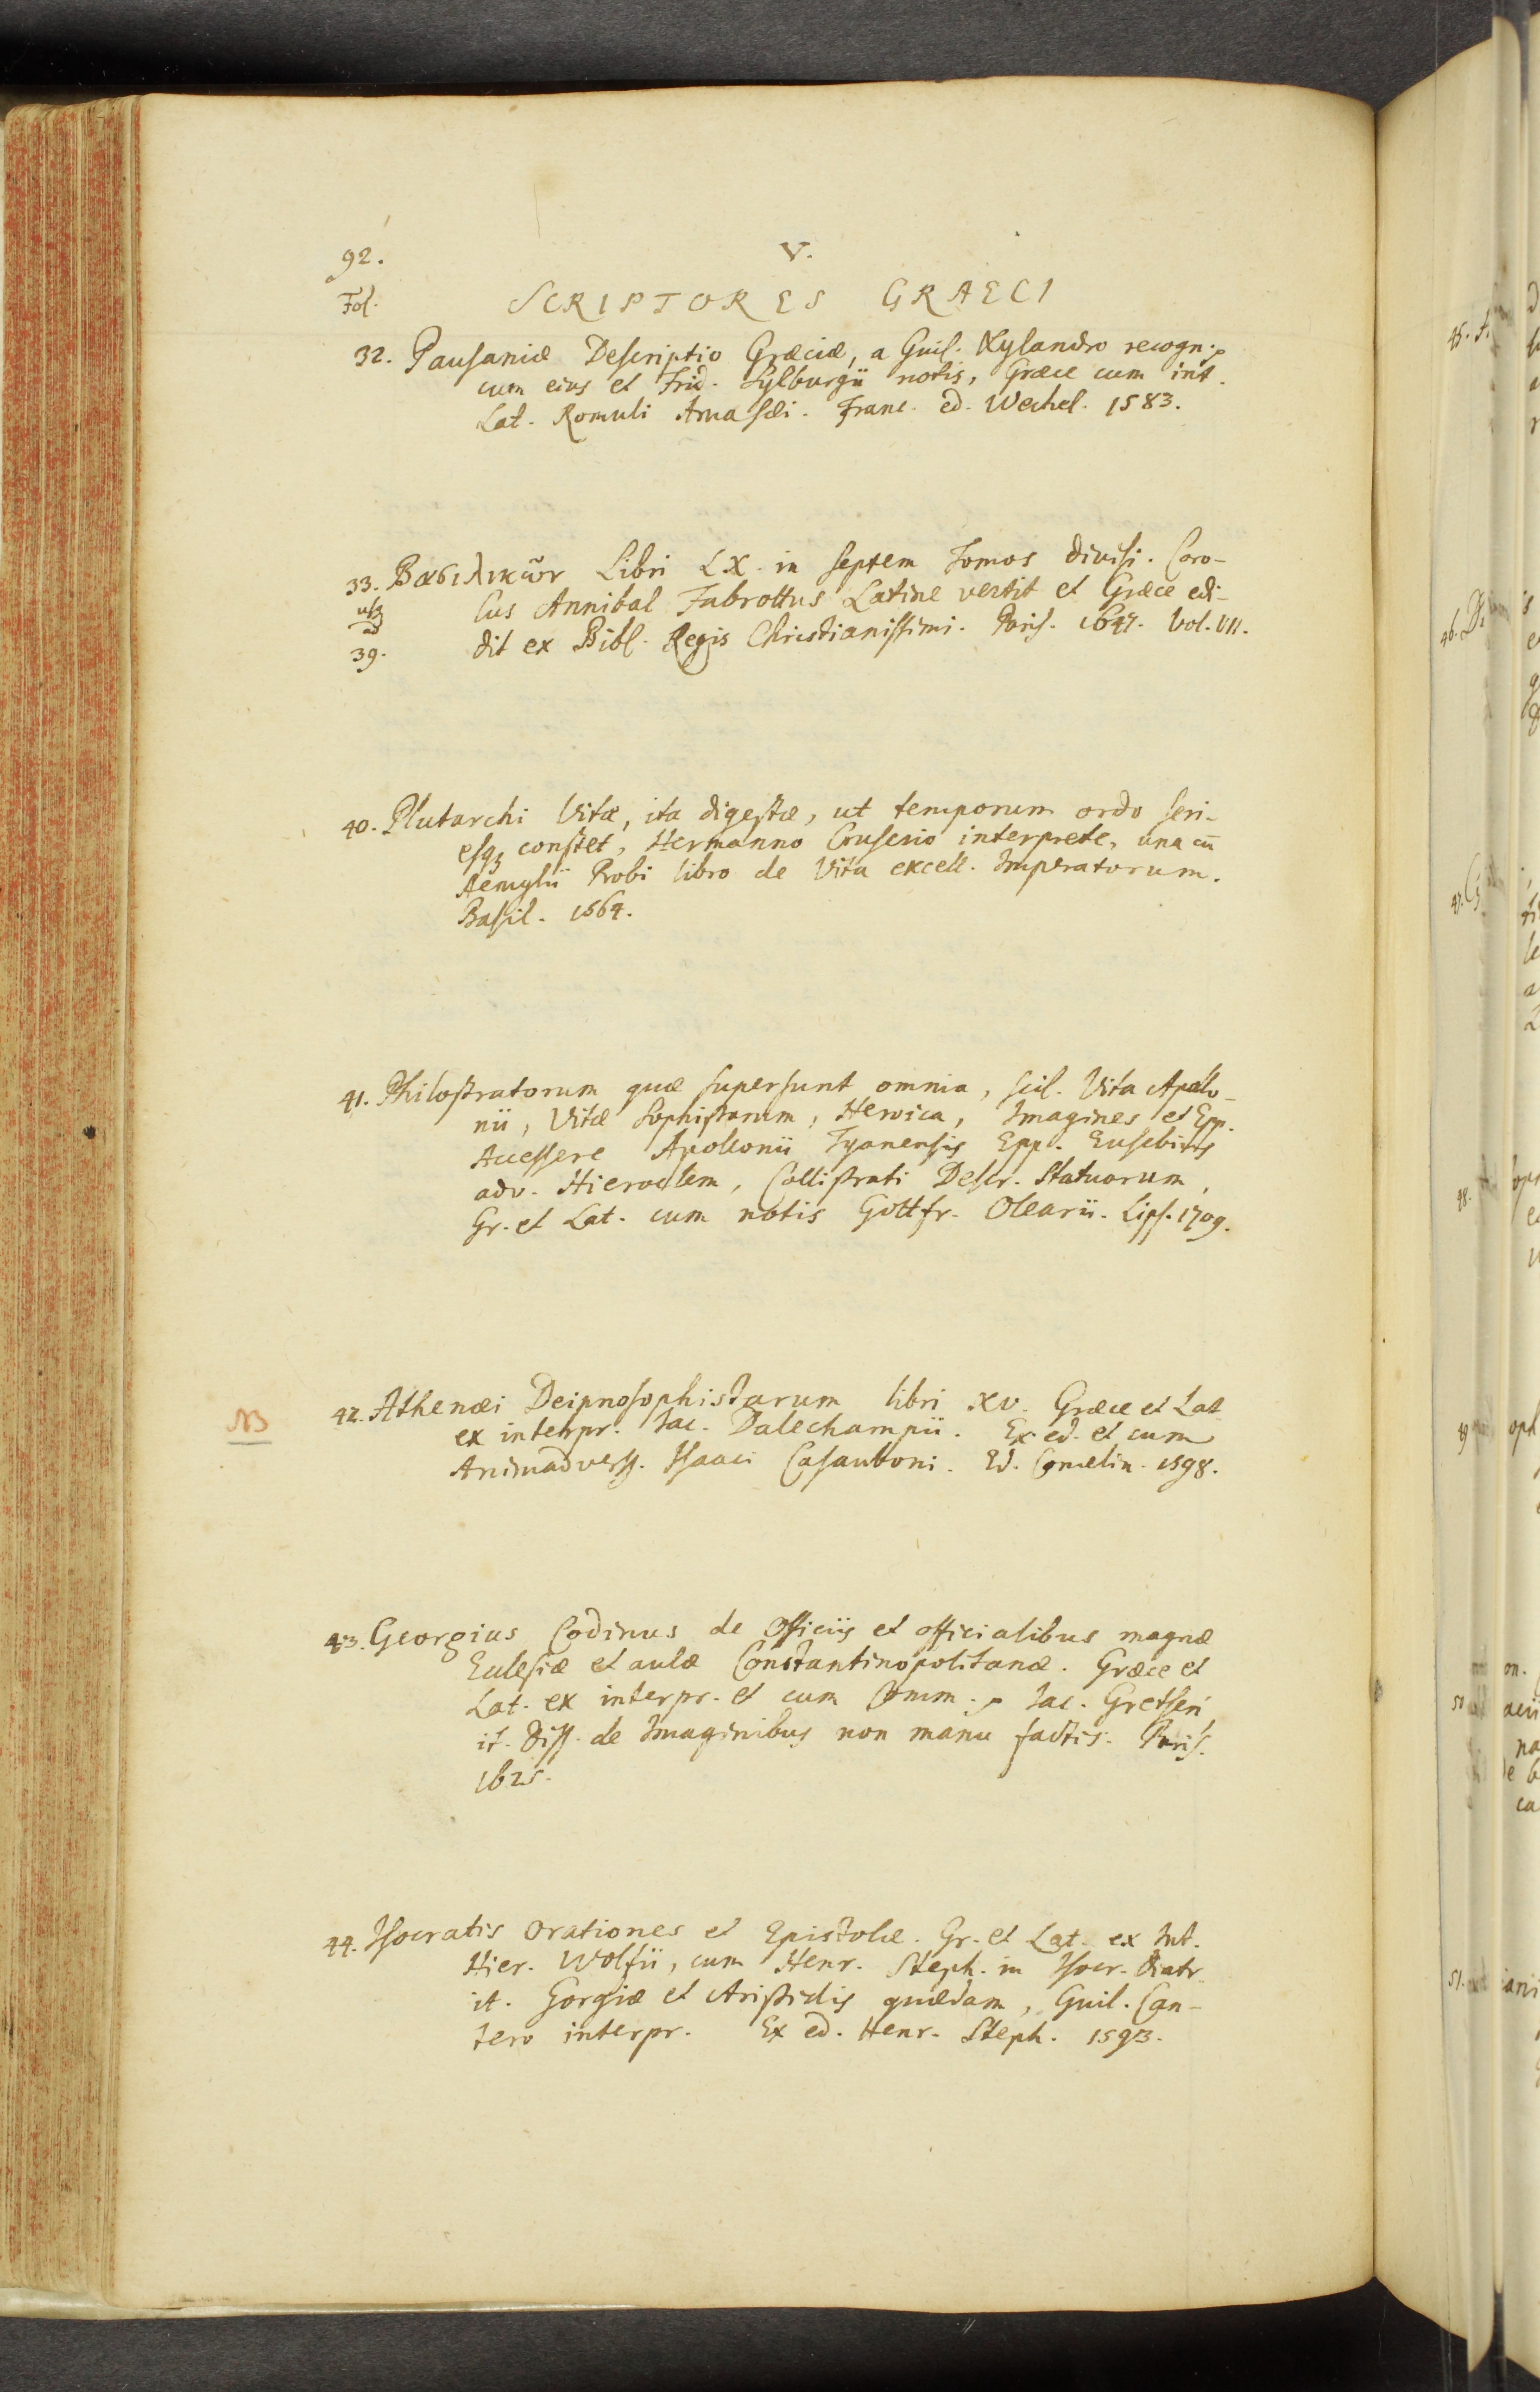 92.
V.
Fol.
SCRIPTORES GRAECI
32. Pausaniæ Descriptio Græciæ, a Guil. Xylandro recogn.
cum eius et Frid. Sylburgii notis, Græce cum int.
Lat. Romuli Amasæi. Franc. ed. Wechel. 1583.
33. Βασιλικῶν Libri LX. in septem Tomos divisi. Caro-
usq
ad
39.
lus Annibal Fabrottus Latine vertit et Græce edi-
dit ex Bibl. Regis Christianissimi. Paris. 1647. Vol. VII.
40. Plutarchi Vitæ, ita digestæ, ut temporum ordo seri-
esq constet, Hermanno Cruserio interprete, una cū
Aemylii Probi libro de Vita excell. Imperatorum.
Basil. 1564.
41. Philostratorum quæ supersunt omnia, scil. Vita Apollo-
nii, Vitæ Sophistarum, Heroica, Imagines et Epp.
Accessere Apollonii Tyanensis Epp. Eusebius
adv. Hieroclem, Callistrati Descr. Statuarum,
Gr. et Lat. cum notis Gottfr. Olearii. Lips. 1709.
NB
42. Athenæi Deipnosophistarum libri XV. Græce et Lat.
ex interpr. Jac. Dalechampii. Ex ed. et cum
Animadverss. Isaaci Casauboni. Ed. Comelin. 1598.
43. Georgius Codinus de Officiis et officialibus magnæ
Eclesiæ et aulæ Constantinopolitanæ. Græce et
Lat. ex interpr. et cum Comm. Jac. Gretseri
it. Diss. de Imaginibus non manu factis. Paris.
1625.
44. Isocratis Orationes et Epistolæ. Gr. et Lat. ex Int.
Hier. Wolfii, cum Henr. Steph. in Isocr. Diatr.
it. Gorgiæ et Aristidis quædam, Guil. Can-
tero interpr. Ex ed. Henr. Steph. 1593.